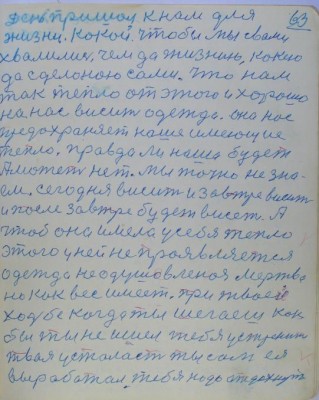 День пришол к нам для 63
жизни. Кокой, чтобы мы свами
хвалились, чем да жизнию, кокою
да сделоною сами. Что нам
так тепло от этого и хорошо
на нас висит одежда. Она нас
предохраняет наше имеющие
тепло. Правда ли наша будет
А может нет. Мы тожо не зна-
ем. сегодня висит и завтре висит
и после завтре будет висет. А
чтоб она имела усебя тепло
этого у ней не проявляется
одежда неодушовленоя мертва
но как вес имеет. При твоей
ходьбе когда ты шегаеш как
бы ты не шшел тебя устронит
твая усталаст ты сам ея
вырабатал, тебя надо атдахнут